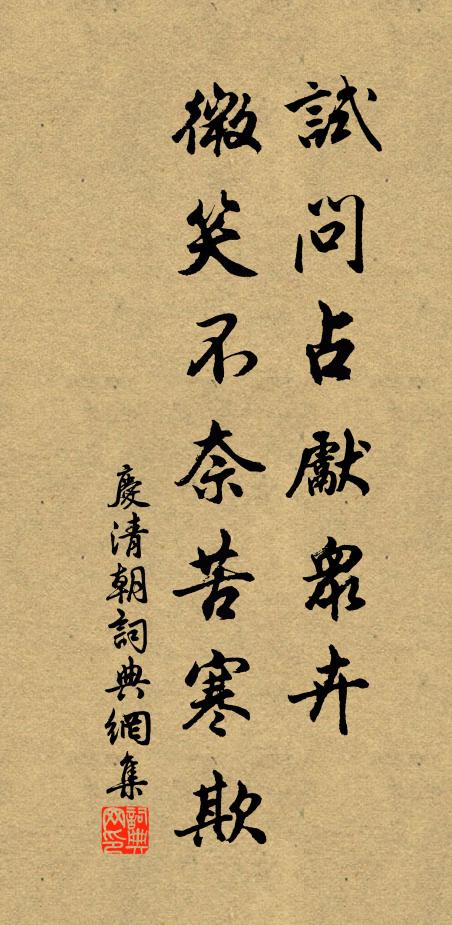 試問占獻衆卉
微笑不奈苦寒欺
慶清朝詞典網集
詞典网印